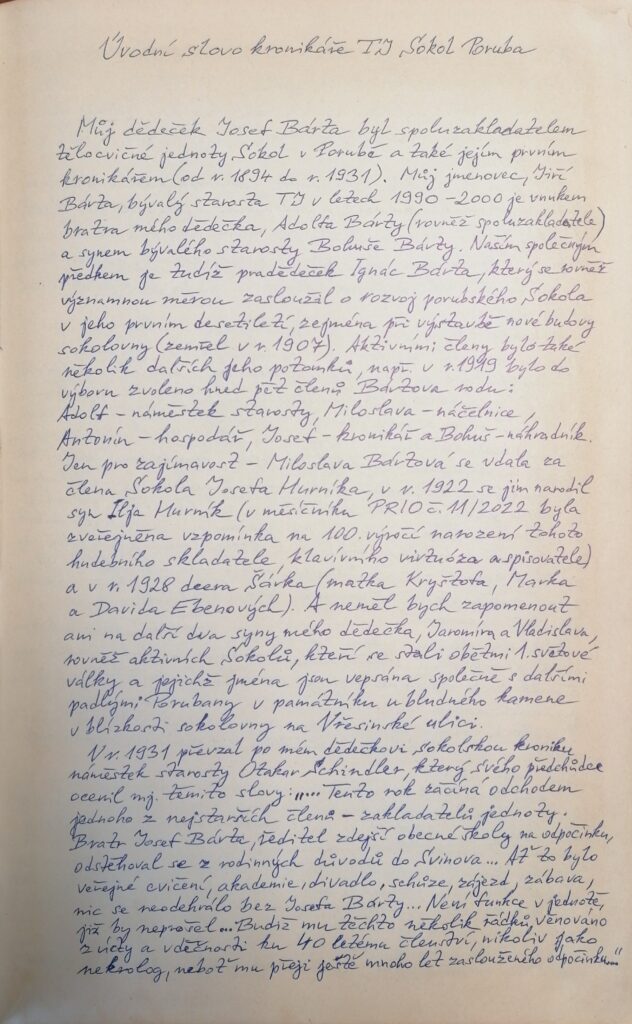 Úvodní slovo kronikáře TJ Sokol Poruba
Můj dědeček Josef Bárta byl spoluzakladatelem
tělocvičné jednoty Sokol v Porubě a také jejím prvním
kronikářem (od r. 1894 do r. 1931). Můj jmenovec, Jiří
Bárta, bývalý starosta TJ v letech 1990-2000 je vnukem
bratra mého dědečka, Adolfa Bárty (rovněž spoluzakladatele)
a synem bývalého starosty Bohuše Bárty. Naším společným
předkem je tudíž pradědeček Ignác Bárta, který se rovněž
významnou měrou zasloužil o rozvoj porubského Sokola
v jeho prvním desetiletí, zejména při výstavbě nové budovy
sokolovny (zemřel v r. 1907). Aktivními členy bylo také
několik dalších jeho potomků, např. v r. 1919 bylo do
výboru zvoleno hned pět členů Bártova rodu:
Adolf - náměstek starosty, Miloslava - náčelnice,
Antonín - hospodář, Josef - kronikář a Bohuš - náhradník.
Jen pro zajímavost - Miloslava Bártová se vdala za
člena Sokola Josefa Hurníka, v r. 1922 se jim narodil
syn Ilja Hurník (v měsíčníku PRIO č. 11/2022 byla
zveřejněna vzpomínka na 100. výročí narození tohoto
hudebního skladatele, klavírního virtuóza a spisovatele)
a v r. 1928 dcera Šárka (matka Kryštofa, Marka
a Davida Ebenových). A neměl bych zapomenout
ani na další dva syny mého dědečka, Jaromíra a Vladislava,
rovněž aktivních Sokolů, kteří se stali oběťmi 1. světové
války a jejichž jména jsou vepsána společně s dalšími
padlými Porubany v památníku u bludného kamene
v blízkosti sokolovny na Vřesinské ulici.
V r. 1931 převzal po mém dědečkovi sokolskou kroniku
náměstek starosty Otakar Schindler, který svého předchůdce
ocenil mj. těmito slovy: „... Tento rok začíná odchodem
jednoho z nejstarších členů - zakladatelů jednoty.
Bratr Josef Bárta, ředitel zdejší obecné školy na odpočinku,
odstěhoval se z rodinných důvodů do Svinova... Ať to bylo
veřejné cvičení, akademie, divadlo, schůze, zájezd, zábava,
nic se neodehrálo bez Josefa Bárty... Není funkce v jednotě,
již by neprošel... Budiž mu těchto několik řádků, věnováno
z úcty a vděčnosti ku 40 letému členství, nikoliv jako
nekrolog, neboť mu přeji ještě mnoho let zaslouženého odpočinku..."